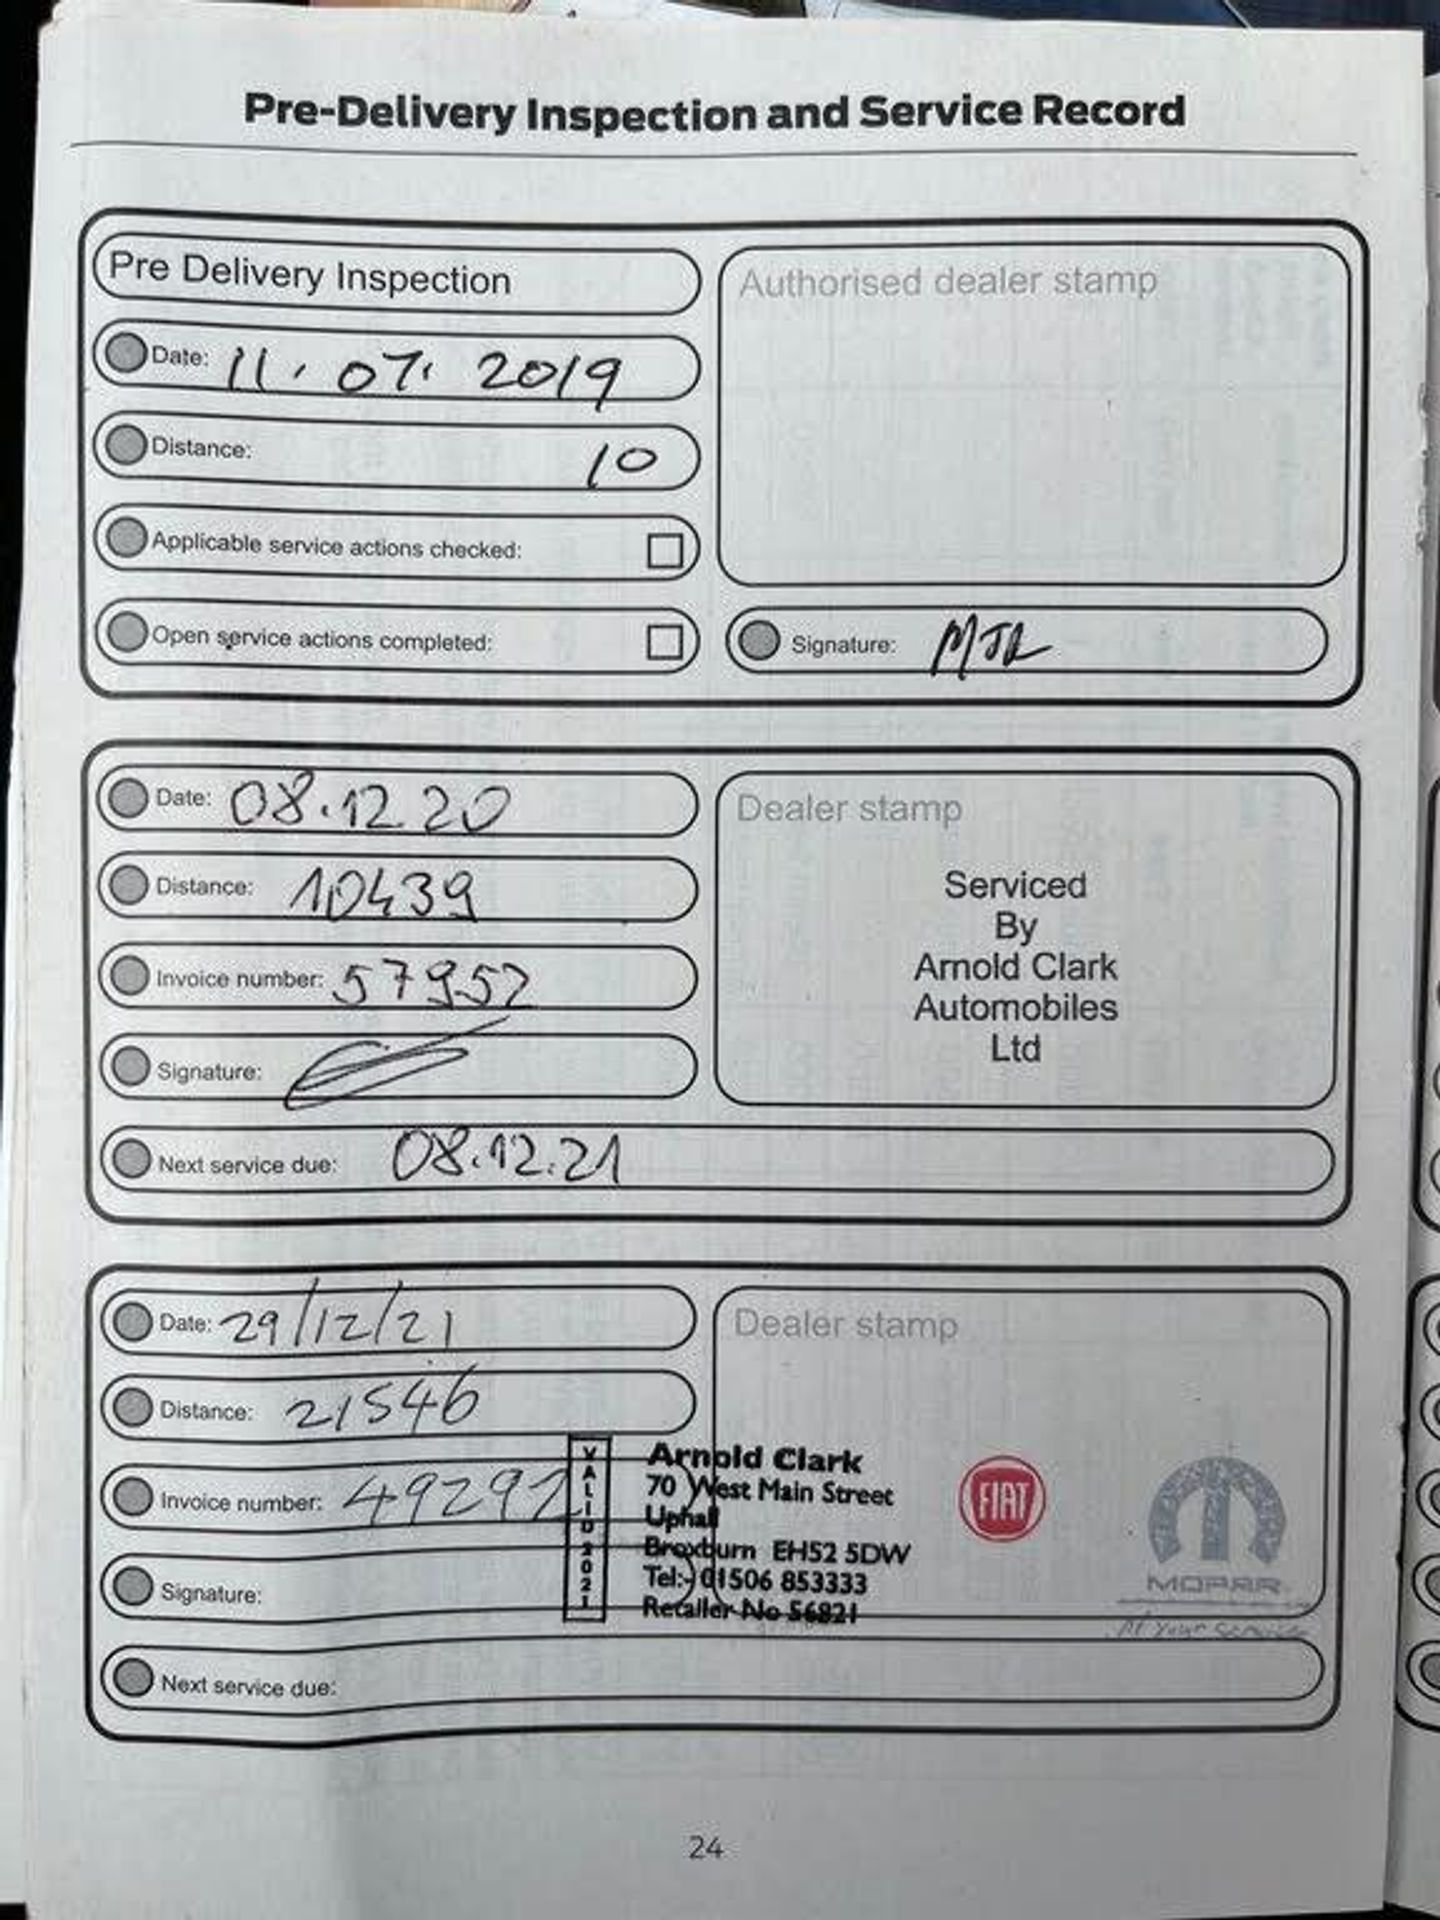 Pre-Delivery Inspection and Service Record
Pre Delivery Inspection
Authorised dealer stamp
Date: 11.07.2019
Distance: 10
Applicable service actions checked:
Open service actions completed:
Signature: MJR
Date: 08.12.20
Dealer stamp
Distance: 10439
Serviced
By
Arnold Clark
Automobiles
Ltd
Invoice number: 57952
Signature:
Next service due: 08.12.21
Date: 29/12/21
Dealer stamp
Distance: 21546
Invoice number:
VALID 2021
Arnold Clark
70 West Main Street
Uphall
Broxburn EH52 5DW
Tel:- 01506 853333
Retailer No 56821
FIAT
MOPAR
At Your Service
Signature:
Next service due:
24